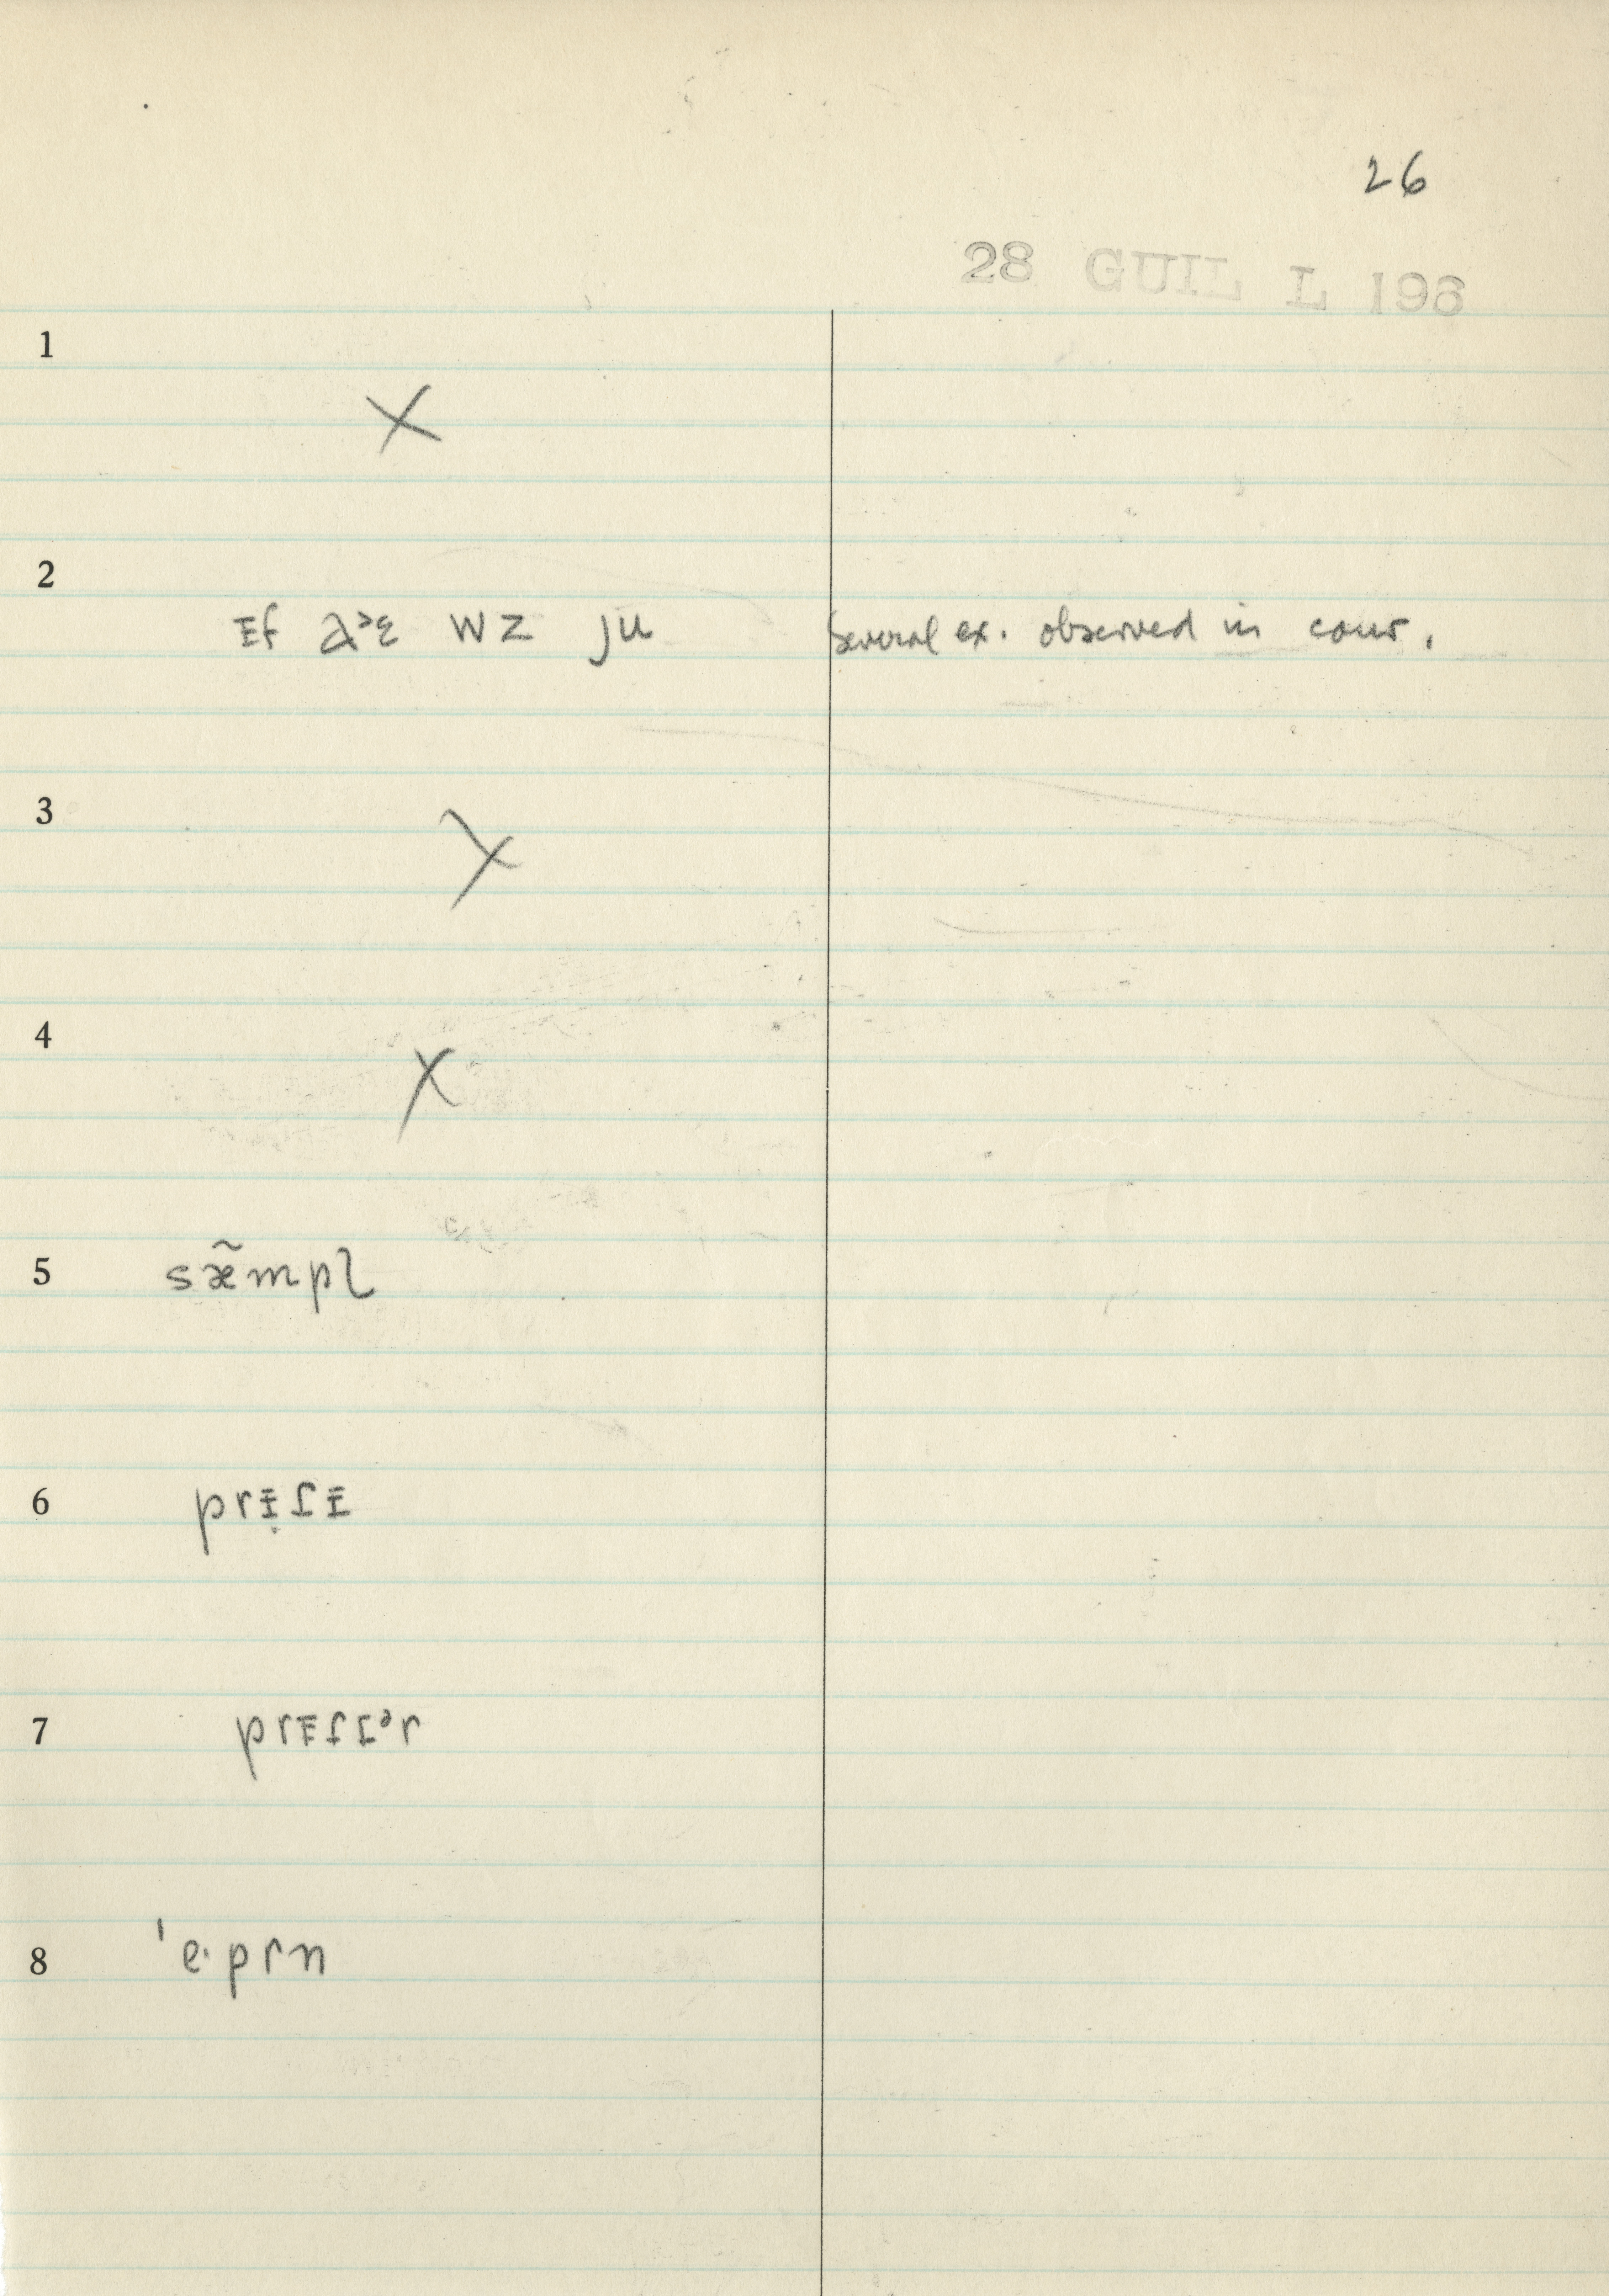 26
28 GUIL L 196
1
X
2 ɪf aˑɛ wz ju several ex. observed in conv.
3
X
4
X
5 sæ̃mpl
6
7
8 'eˑprn